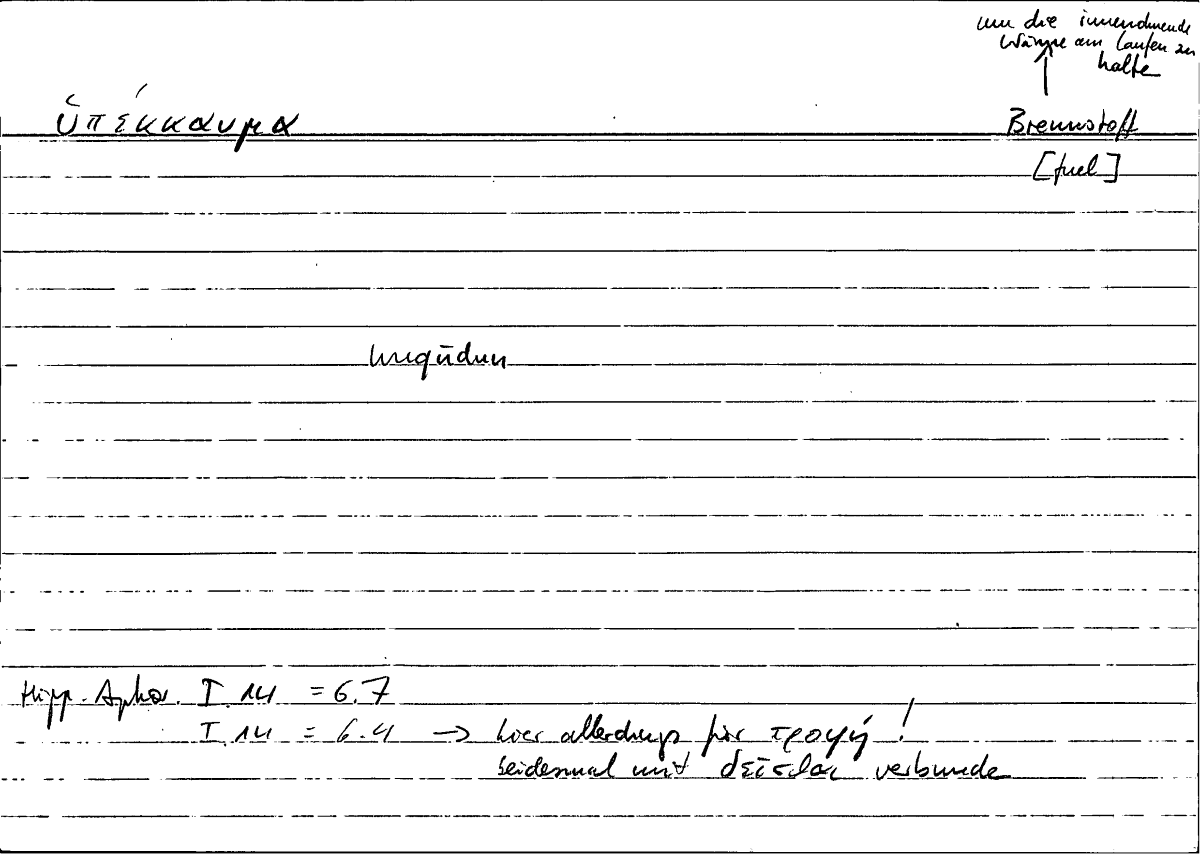 um die innewohnende
Wärme am Laufen zu
halte
ὑπέκκαυμα
Brennstoff
[fuel]
Hipp. Aphor. I.14 = 6.7
I.14 = 6.4 → hier allerdings für τροφή!
beidesmal mit δεῖσθαι verbunde